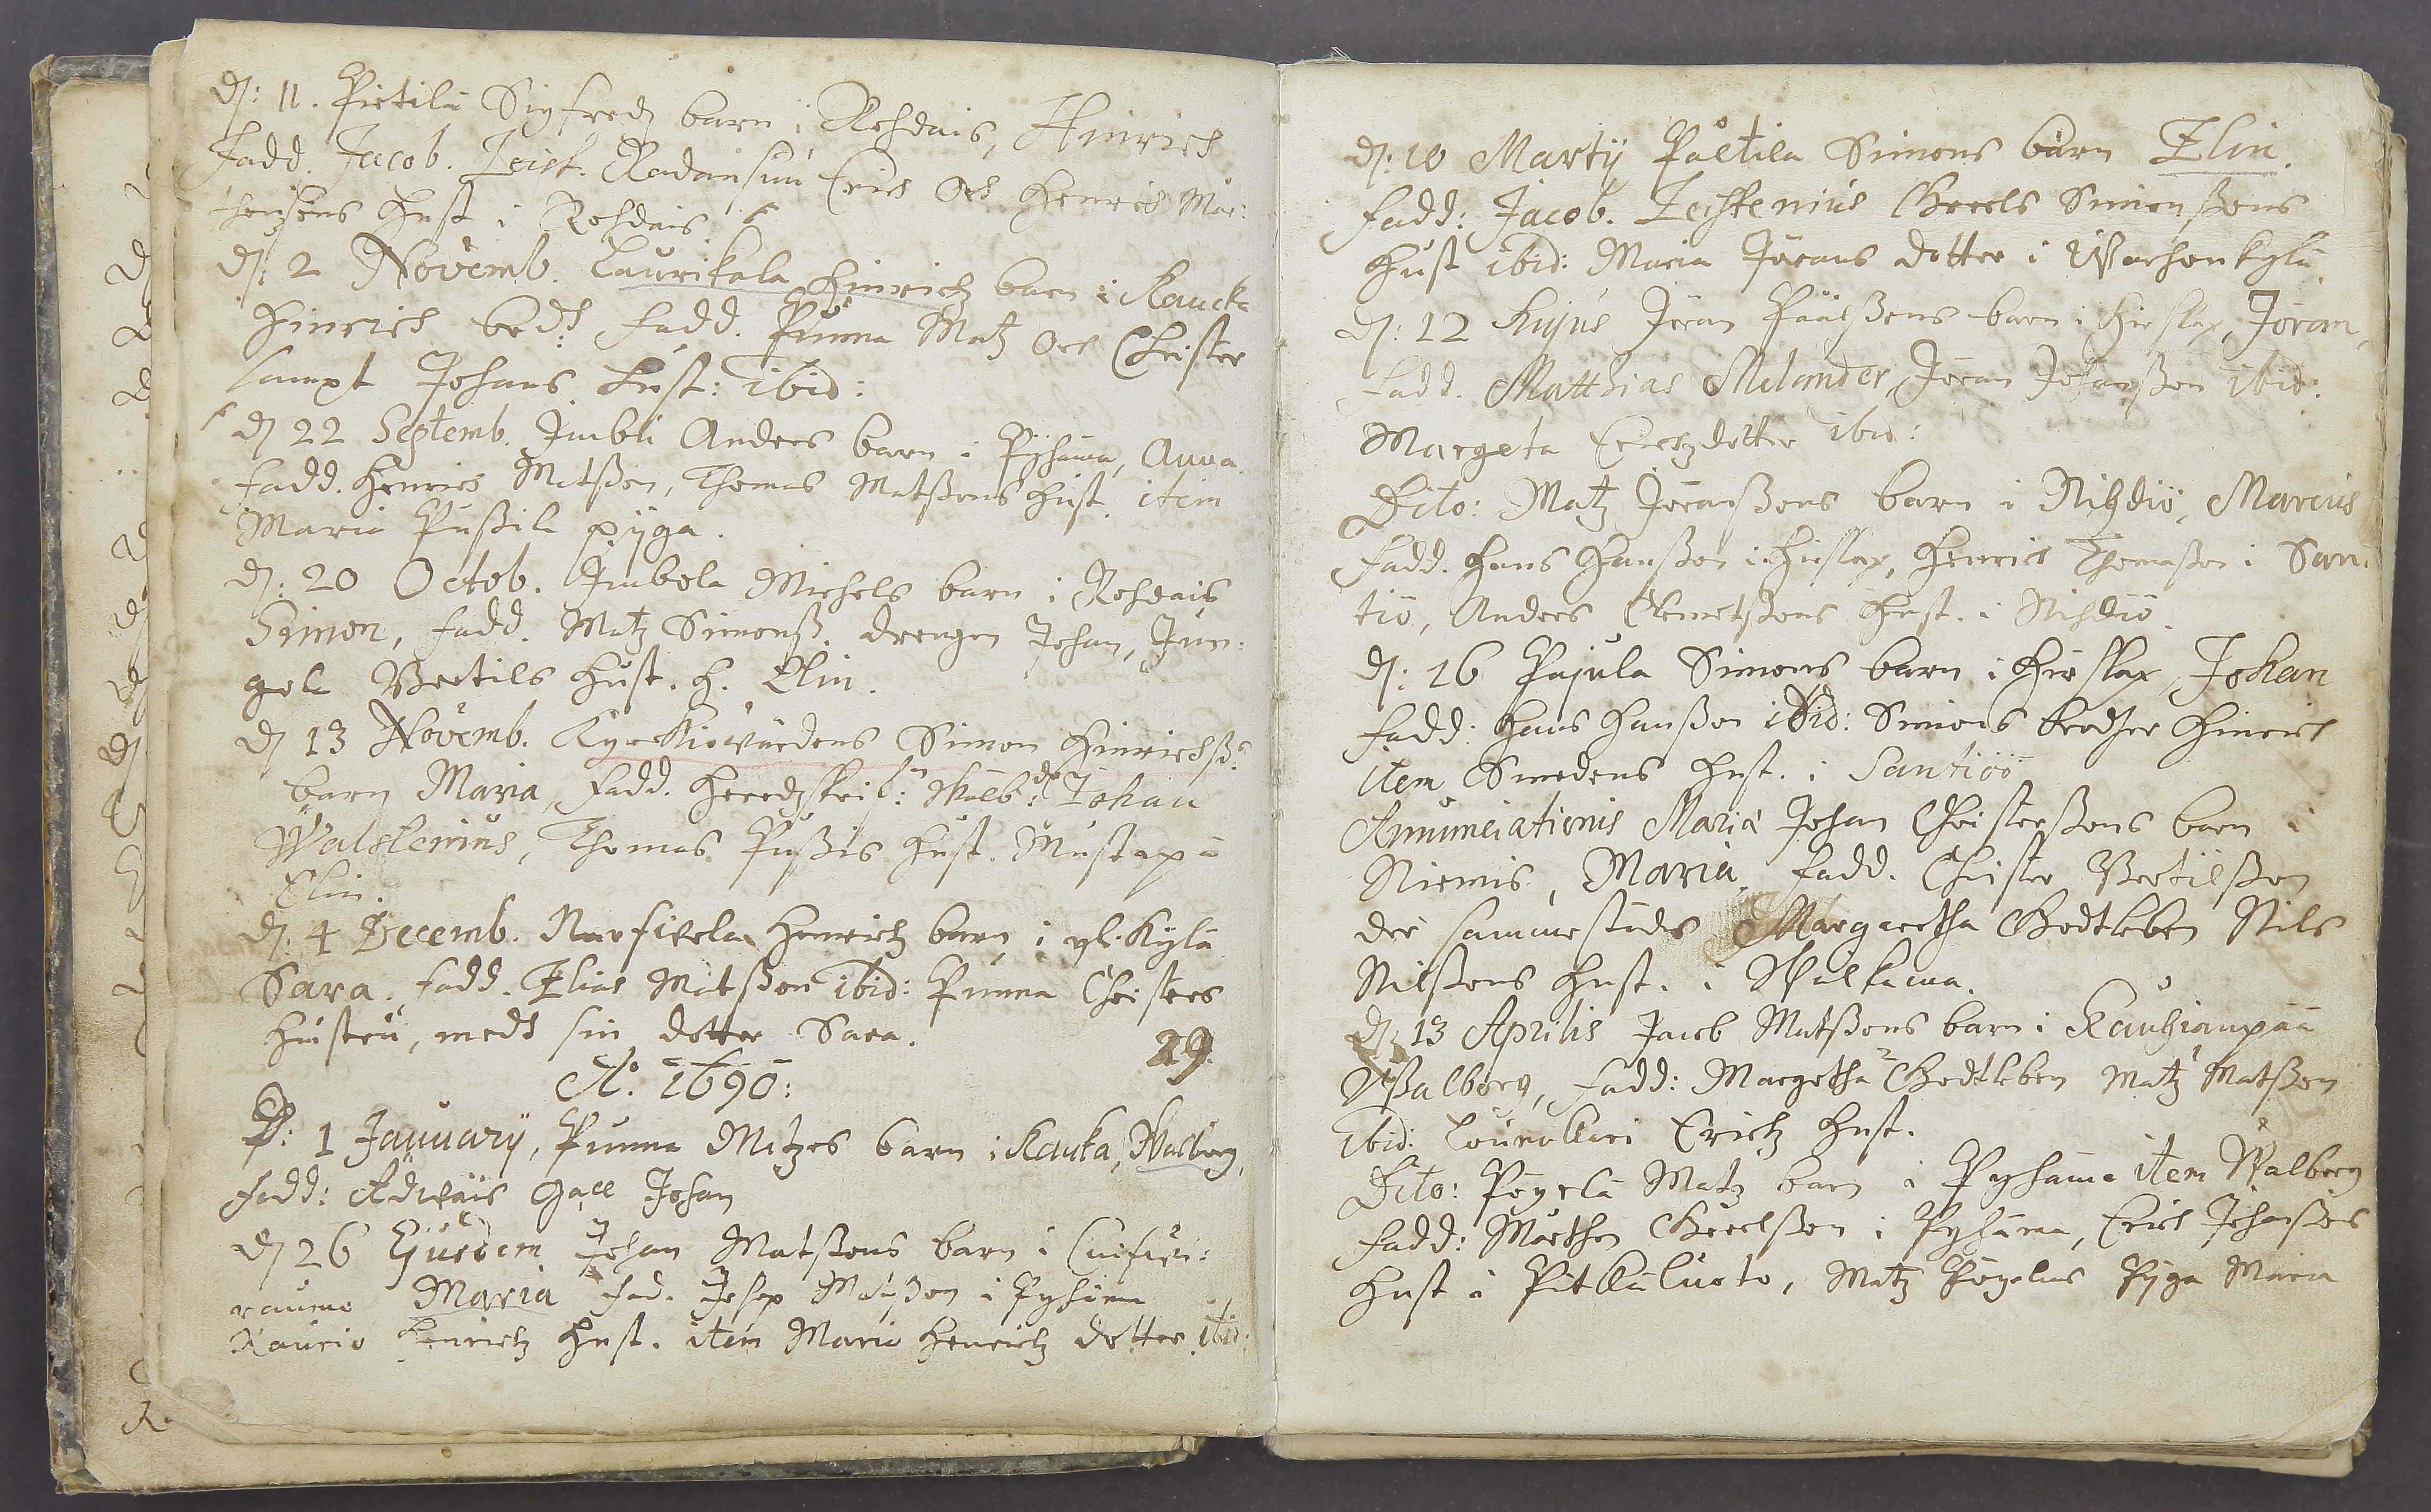 d: 11. Pietilä Sigfredz barn i Rohdais, Hinrich
Fadd. Jacob. Leist. Radansuu Erich och Henrich Mår:
thenssens Hust i Rohdais
d: 2 Novemb. Laurikala Hinrichz barn i Kaucka
Hinrich bedt Fadd. Punna Matz och Christer
sampt Johans Hust: ibid:
d 22 Septemb. Jmbli Anders barn i Pyhäma, Anna.
Fadd. Henrich Matßon, Thomas Matßons Hust. item
Maria Pußila pyga.
d: 20 Octob. Jmbola Michels barn i Rohdais
Simon, Fadd. Matz Simonß. drengen Johan, Jun:
gola Bertils Hust. H. Elin.
d 13 Novemb. Kyrkiowärdens Simon Hinrichß:
barn Maria, Fadd. Heredzskrif: Wälb: Johan
Walstenius, Thomas Pußis Hust. Mustapä
Elin.
d: 4 Decemb. Narfikela Henrichz barn i gl. Kylä
Sara. Fadd. Elias Matßon ibid: Punna Christers
Hustru, medh sin dotter Sara.
29.
Ao. 1690:
D: 1 January, Punna Matzes barn i Kauka, Walborg,
Fadd: Adwais Gall Johan
d 26 Ejusdem Johan Matßons barn i
raumo Maria Fad. Josep Matßon i Pyhäma
Kaurio Henrichz Hust. item Maria Henrichz dotter ibid:
d: 10 Martij Påltila Simons barn Elin.
Fadd: Jacob. Leistenius Greels Simonßons
Hust ibid: Maria Jörans dotter i Warhonkylä.
d: 12 hujus Jöran Påålßons barn i Hirslax, Jöran,
Fadd. Matthias Melander, Jöran Johanßon ibid:
Margeta Erichzdotter ibid:
Dito: Matz Jöranßons barn i Nihdiö, Marcus
Fadd. Hans Hanßon i Hirslax, Henrich Thomaßon i San:
tiö, Anders Clemetßons Hust. i Nihdiö.
d: 16 Pajula Simons barn i Hirslax, Johan
Fadd: Hans Hanßon ibid: Simons brodher Hinrich
item Smedens Hust. i Santiöö
Annunciationis Mariæ Johan Christerßons barn i
Niemis, Maria. Fadd. Christer Bertilßon
der sammestädes Margaretha Godtleben Nils
Nilßons Hust. i Walkama.
d: 13 Aprilis Jacob Matßons barn i Kauhianpää
Walborg, Fadd: Margetha Godtleben Matz Matßon
ibid: Lounolkari Erichz Hust.
Dito: Pöyelä Matz barn i Pyhäma item Walborg
Fadd: Mårthen Greelßon i Pyhäma, Erich Johanßons
Hust i Pitkäluoto, Matz Pöyelas Pyga Maria